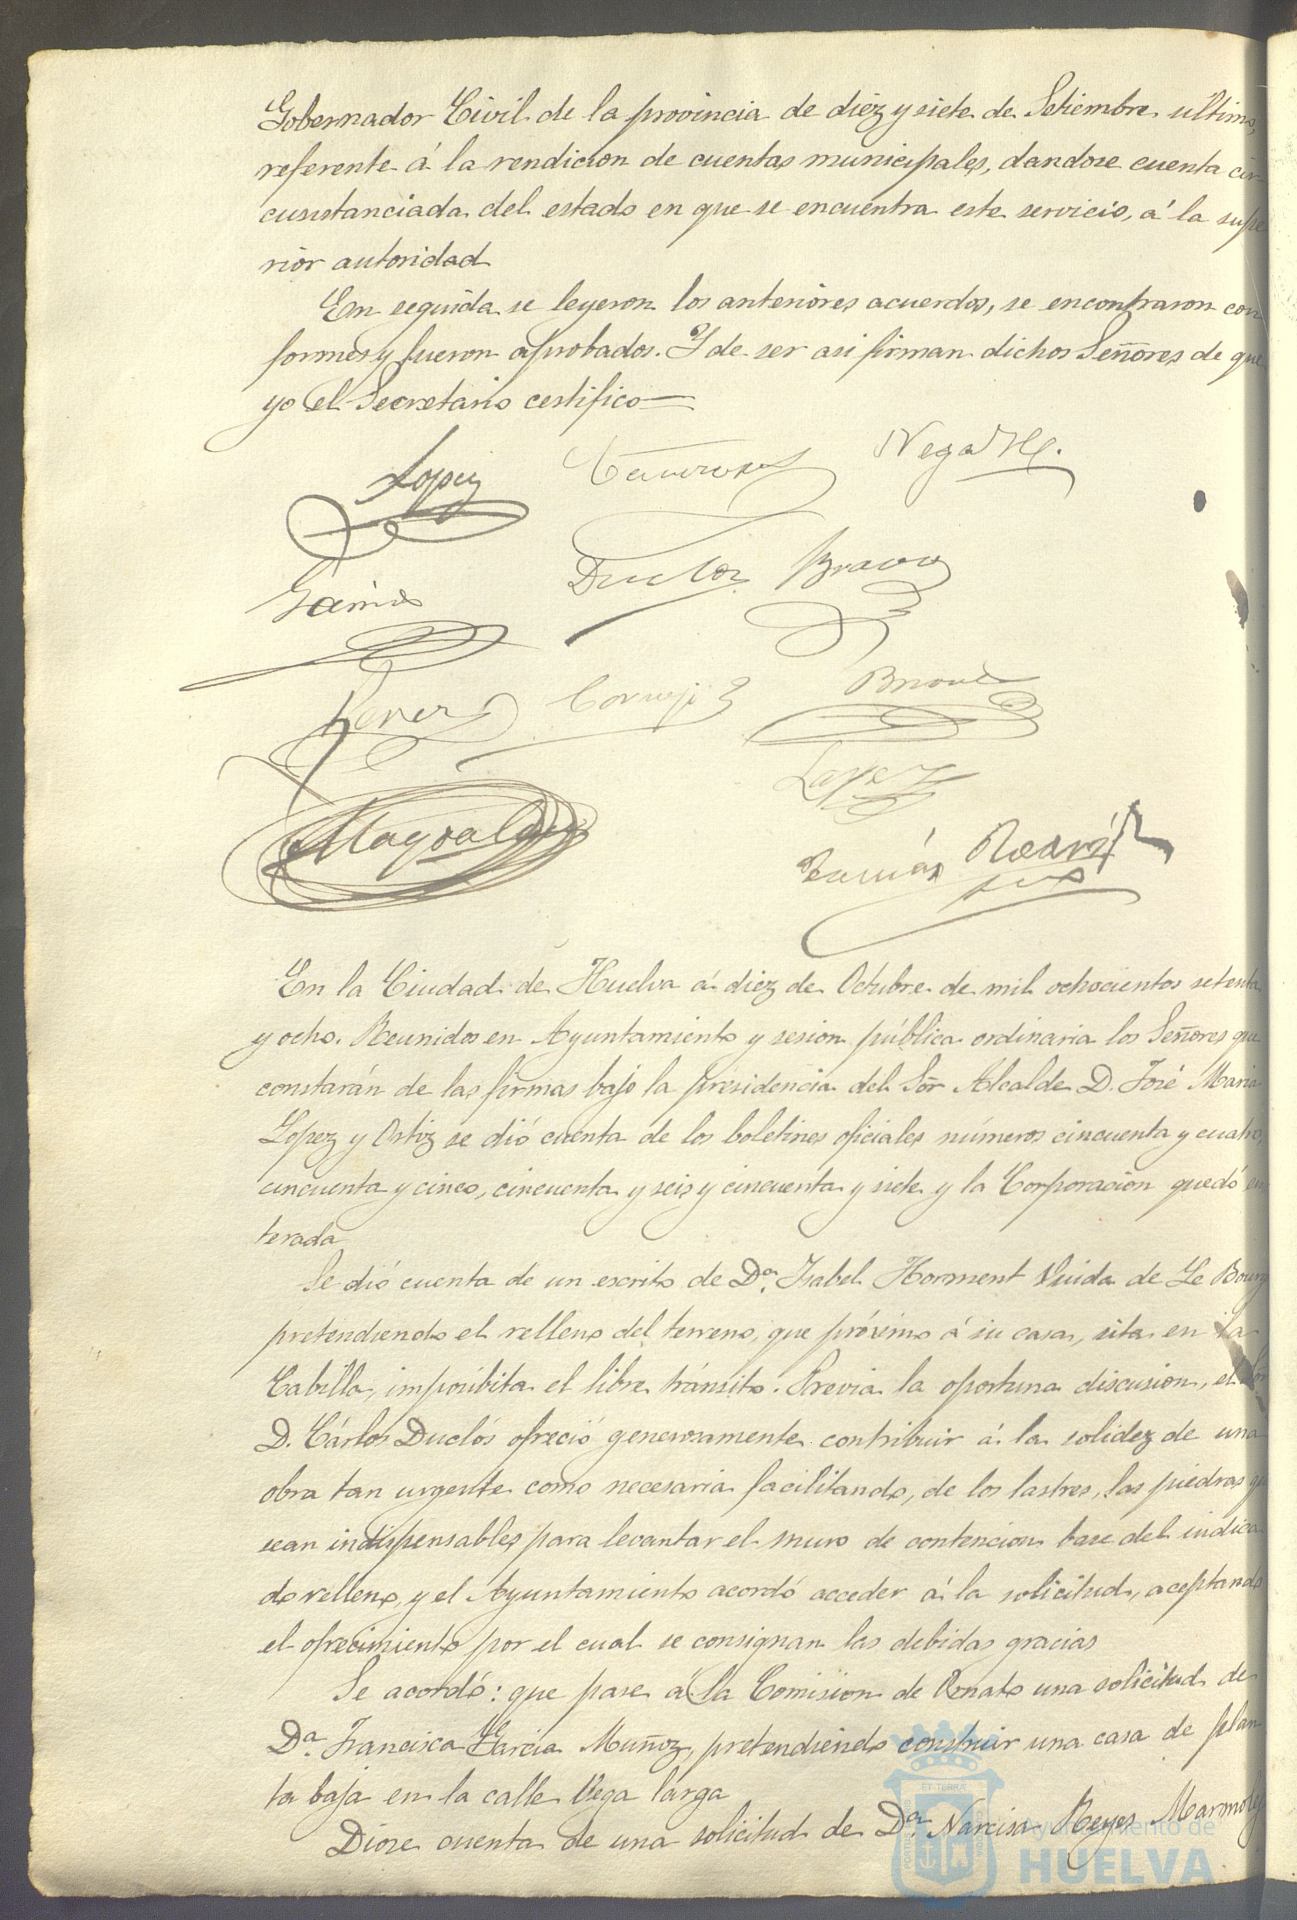 Gobernador Civil de la provincia de diez y siete de Setiembre último,
referente á la rendicion de cuentas municipales, dandose cuenta cir
cunstanciada del estado en que se encuentra este servicio, á la supe
rior autoridad
En seguida se leyeron los anteriores acuerdos, se encontraron con
formes y fueron aprobados. Y de ser asi firman dichos Señores de que
yo el Secretario certifico
Lopez
Vega
Garcia Duclos Bravo
Perez Cornejo
Lopez
En la Ciudad de Huelva á diez de Octubre de mil ochocientos setenta
y ocho. Reunidos en Ayuntamiento y sesion pública ordinaria los Señores que
constarán de las firmas bajo la presidencia del Sõr Alcalde D. José Maria
Lopez y Ortiz se dió cuenta de los boletines oficiales números cincuenta y cuatro,
cincuenta y cinco, cincuenta y seis y cincuenta y siete y la Corporacion quedó en
terada
Se dió cuenta de un escrito de Dª Isabel Horment Viuda de Le Bourg
pretendiendo el relleno del terreno, que próximo á su casa, sita en la
Calzadilla, imposibita el libre tránsito. Previa la oportuna discusion, el Sõr
D. Cárlos Duclós ofreció generosamente contribuir á la solidez de una
obra tan urgente como necesaria facilitando, de los lastres, las piedras que
sean indispensables para levantar el muro de contencion base del indica
do relleno, y el Ayuntamiento acordó acceder á la solicitud, aceptando
el ofrecimiento por el cual se consignan las debidas gracias
Se acordó: que pase á la Comision de Ornato una solicitud de
Dª Francisca Garcia Muñoz, pretendiendo construir una casa de plan
ta baja en la calle Vega larga
Diose cuenta de una solicitud de Dª Narcisa Reyes Marmolej
Ayuntamiento de
HUELVA